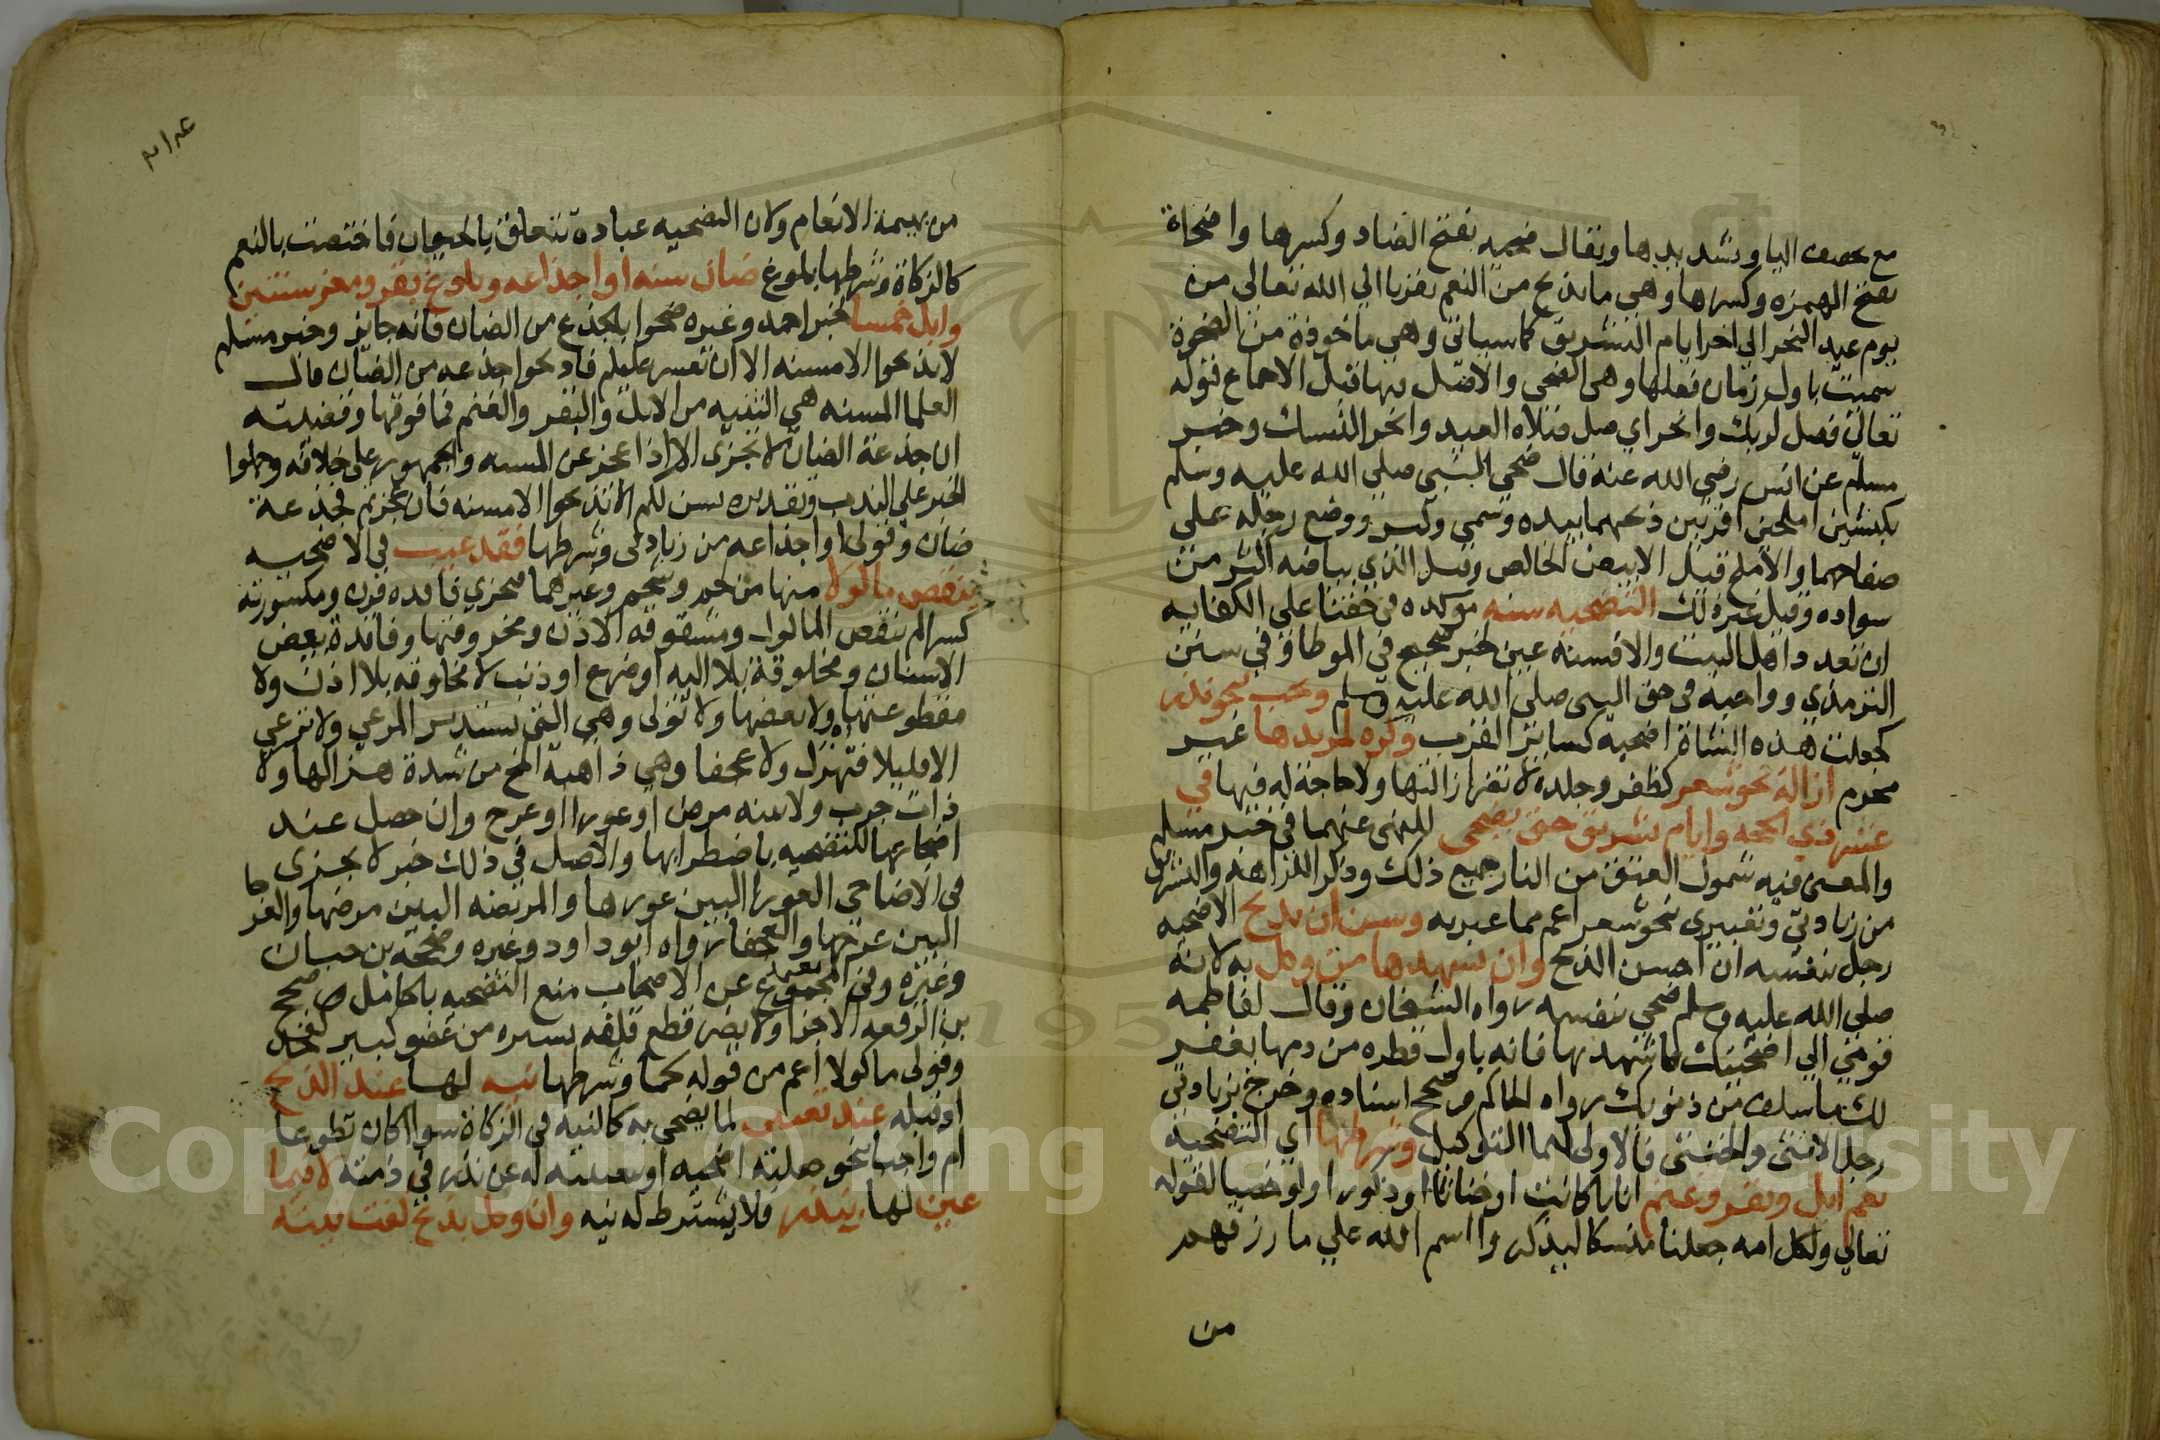 مع تخفيف اليا وتشديدها ويقال ضحيه بفتح الضاد وكسرها واضحاة
بفتح الهمزه وكسرها وهي ما يذبح من النعم تقربا الي الله تعالى من
يوم عيد النحر الي اخر ايام التشريق كما سياتي وهي ماخوذة من الضحوة
سميت باول زمان فعلها وهي الضحى والاصل فيها قبل الاجماع قوله
تعالى فصل لربك وانحر اي صل صلاه العيد وانحر النسك وخبر
مسلم عن انس رضي الله عنه قال ضحى النبي صلي الله عليه وسلم
بكبشين املحين اقرنين ذبحهما بيده وسمى وكبر ووضع رجله على
صفاحهما والاملح قيل الابيض الخالص وقيل الذي بياضه اكثر من
سواده وقيل غير ذلك التضحيه سنه موكده في حقنا على الكفايه
ان تعدد اهل البيت والا فسنة عين لخبر صحيح في الموطا وفي سنن
الترمذي وواجبة في حق النبي صلى الله عليه وسلم وتجب بنحو نذر
كجعلت هذه الشاة اضحية كسائر القرب وكره لمريدها غير
محرم ازالة نحو شعر كظفر وجلدة لا تضر ازالتها ولا حاجة له فيها في
عشر ذي الحجه وايام تشريق حتى يضحى للنهى عنهما في خبر مسلم
والمعنى فيه شمول العتق من النار جميع ذلك وذكر الكراهة والتشريق
من زيادتي وتعبيري بنحو شعر اعم مما عبر به وسن ان يذبح الاضحيه
رجل بنفسه ان احسن الذبح وان يشهدها من وكل به لانه
صلى الله عليه وسلم ضحى بنفسه رواه الشيخان وقال لفاطمه
قومي الي اضحيتك فاشهديها فانه باول قطره من دمها يغفر
لك ما سلف من ذنوبك رواه الحاكم وصحح اسناده وخرج بزيادتي
رجل الانثى والخنثى فالاولى لهما التوكيل وشرطها اي التضحية
نعم ابل وبقر وغنم اناثا كانت او خناثا او ذكورا ولو خصيا لقوله
تعالي ولكل امه جعلنا منسكا ليذكروا اسم الله علي ما رزقهم
من
من بهيمة الانعام ولان التضحيه عبادة تتعلق بالحيوان فاختصت بالنعم
كالزكاة وشرطها بلوغ ضان سنه او اجذاعه وبلوغ بقر ومعز سنتين
وابل خمسا لخبر احمد وغيره ضحوا بالجذع من الضان فانه جايز وخبر مسلم
لا تذبحوا الا مسنه الا ان تعسر عليكم فاذبحوا جذعه من الضان قال
العلما المسنه هي الثنيه من الابل والبقر والغنم فما فوقها وقضيته
ان جذعة الضان لا تجزى الا اذا عجز عن المسنه والجمهور على خلافه وحملوا
الخبر علي الندب وتقديره يسن لكم الا تذبحوا الا مسنه فان عجزتم فجذعة
ضان وقولى او اجذاعه من زيادتى وشرطها فقد عيب في الاضحيه
ينقص ماكولا منها من لحم وشحم وغيرهما فتجزي فاقده قرن ومكسورته
كسرا لم ينقص الماكول ومشقوقه الاذن ومخروقتها وفاقدة بعض
الاسنان ومخلوقة بلا اليه او ضرع او ذنب لا مخلوقه بلا اذن ولا
مقطوعتها ولا بعضها ولا تولى وهي التي تستدبر المرعي ولا ترعي
الا قليلا فتهزل ولا عجفا وهي ذاهبة المخ من شدة هزالها ولا
ذات جرب ولا بينه مرض او عورا او عرج وان حصل عند
اضجاعها للتضحيه باضطرابها والاصل في ذلك خبر لا يجزى
في الاضاحي العورا البين عورها والمريضه البين مرضها والعرجا
البين عرجها والعجفا رواه ابو داود وغيره وصححه بن حبان
وغيره وفي المجموع عن الاصحاب منع التضحيه بالحامل وصحح
بن الرفعه الاجزا ولا يضر قطع فلقه يسيره من عضو كبير كفخذ
وقولى ماكولا اعم من قوله لحما وشرطها نيه لها عند الذبح
او قبله عند تعيين لما يضحى به كالنيه في الزكاة سوا اكان تطوعا
ام واجبا بنحو جعلته اضحيه او بتعيينه له عن نذر في ذمته لا فيما
عين لها بنذر فلا يشترط له نيه وان وكل بذبح كفت نيته